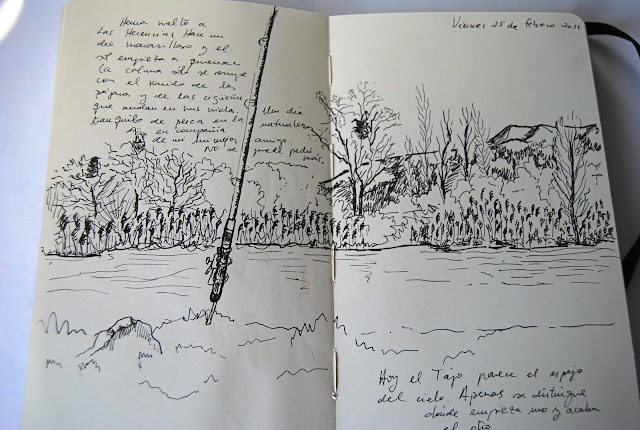 Hemos vuelto a
Las Herencias. Hace un
día maravilloso y el
sol empieza a quemar
la calma sólo se rompe
con el sonido de los
pájaros y de las cigüeñas
que andan en sus nidos. Un día
tranquilo de pesca en la naturaleza
en compañía
de un buen amigo.
NO se puede pedir
más.
Viernes 25 de febrero 2011
Hoy el Tajo parece el espejo
del cielo. Apenas se distingue
dónde empieza uno y acaba
el otro.